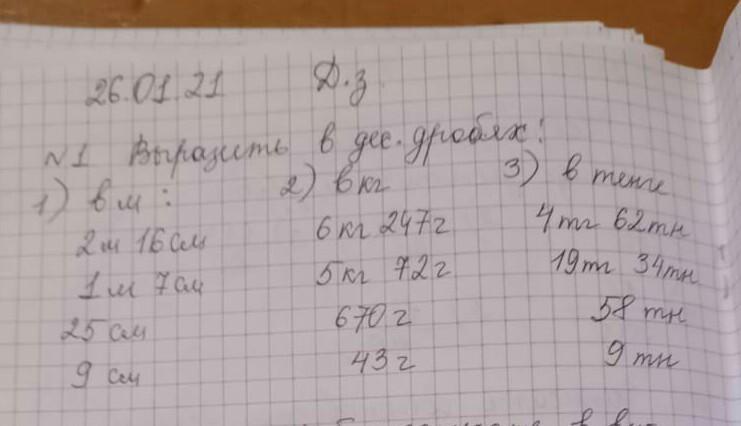 26.01.21 Д.з
№1 Выразить в дес. дробях:
1) в м: 2) в кг 3) в тенге
2м 16см 6кг 247г 4тг 62тн
1м 7см 5кг 72г 19тг 34тн
25 см 670г 58 тн
9 см 43г 9 тн